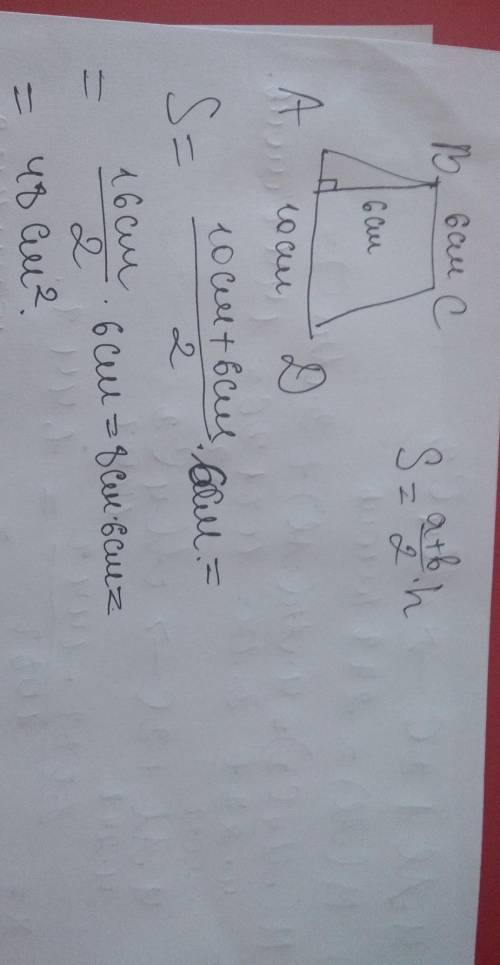 B 6см C
S = a+b/2 · h
6см
A 10см D
S = 10см+6см/2 · 6см =
= 16см/2 · 6см = 8см · 6см =
= 48 см².